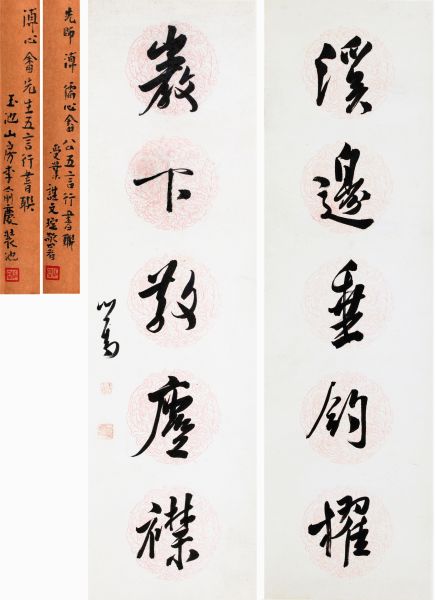 溪邊垂釣櫂
巖下散塵襟
心畬
先師溥儒心畬公五言行書聯
受業 敬署
溥心畬先生五言行書聯
玉池山房李 慶裝池